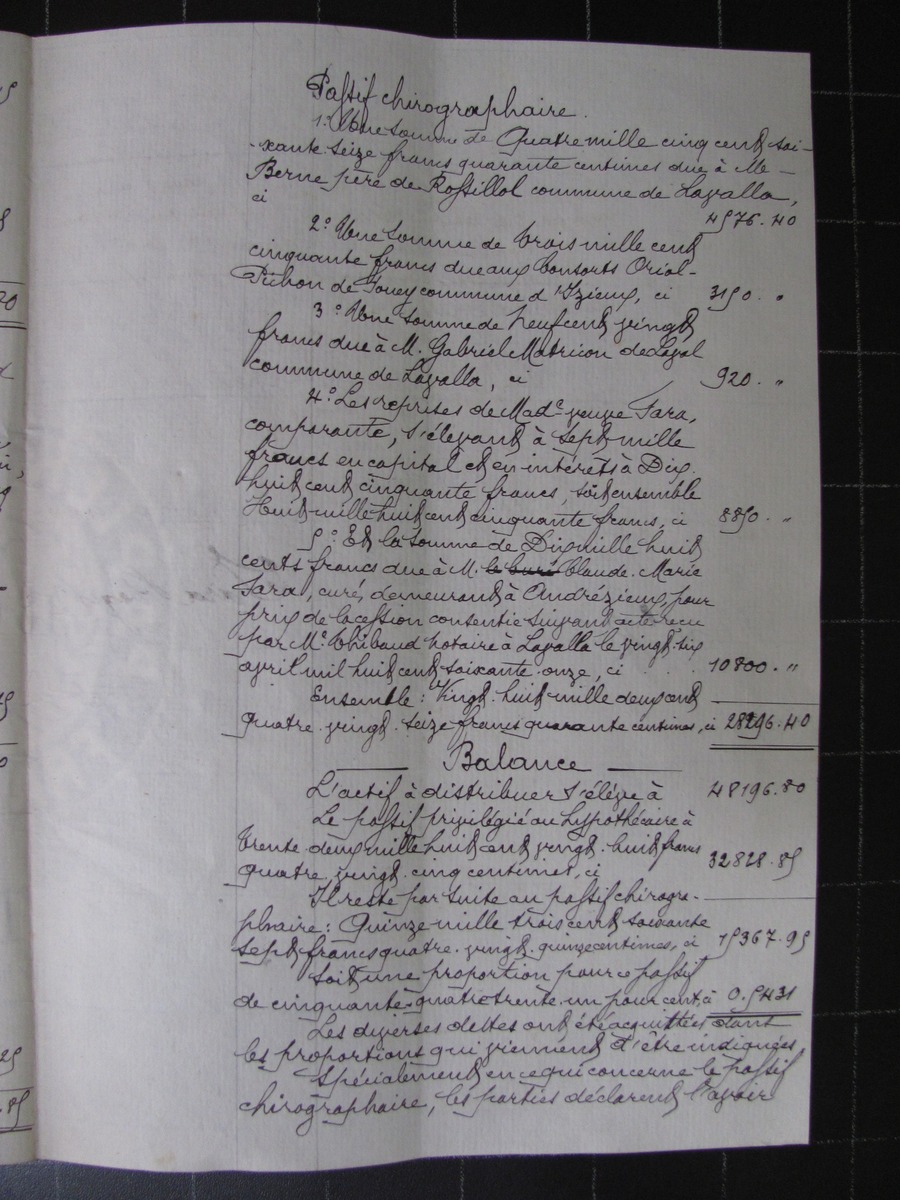 Passif chirographaire.
1° Une somme de Quatre mille cinq cent soi-
-xante seize francs quarante centimes due à Me
Berne père de Rossillol commune de Lavalla,
ci 4576.40
2° Une somme de trois mille cent
cinquante francs due aux Consorts Oriol-
Pichon de Jouey commune d'Izieux, ci 3150. "
3° Une somme de neuf cent vingt
francs due à M. Gabriel Matricon de Laval
commune de Lavalla, ci 920. "
4° Les reprises de Made veuve Fara,
comparante, s'élevant à sept mille
francs en capital et en intérêts à Dix
huit cent cinquante francs, soit ensemble
Huit mille huit cent cinquante francs, ci 8850. "
5° Et la somme de Dix mille huit
cents francs due à M. le curé Claude-Marie
Fara, curé, demeurant à Andrézieux, pour
prix de la cession consentie suivant acte reçu
par Me Thibaud notaire à Lavalla le vingt-six
avril mil huit cent soixante-onze, ci 10800. "
Ensemble: Vingt-huit mille deux cent
quatre-vingt-seize francs quarante centimes, ci 28296.40
Balance
L'actif à distribuer s'élève à 48196.80
Le passif privilégié ou hypothécaire à
trente-deux mille huit cent vingt-huit francs
quatre-vingt-cinq centimes, ci 32828.85
Il reste par suite au passif chirogra-
phaire: Quinze mille trois cent soixante
sept francs quatre-vingt-quinze centimes, ci 15367.95
Soit une proportion pour ce passif
de cinquante-quatre trente-un pour cent, ci 0.5431
Les diverses dettes ont été acquittées dans
les proportions qui viennent d'être indiquées.
Spécialement en ce qui concerne le passif
chirographaire, les parties déclarent l'avoir